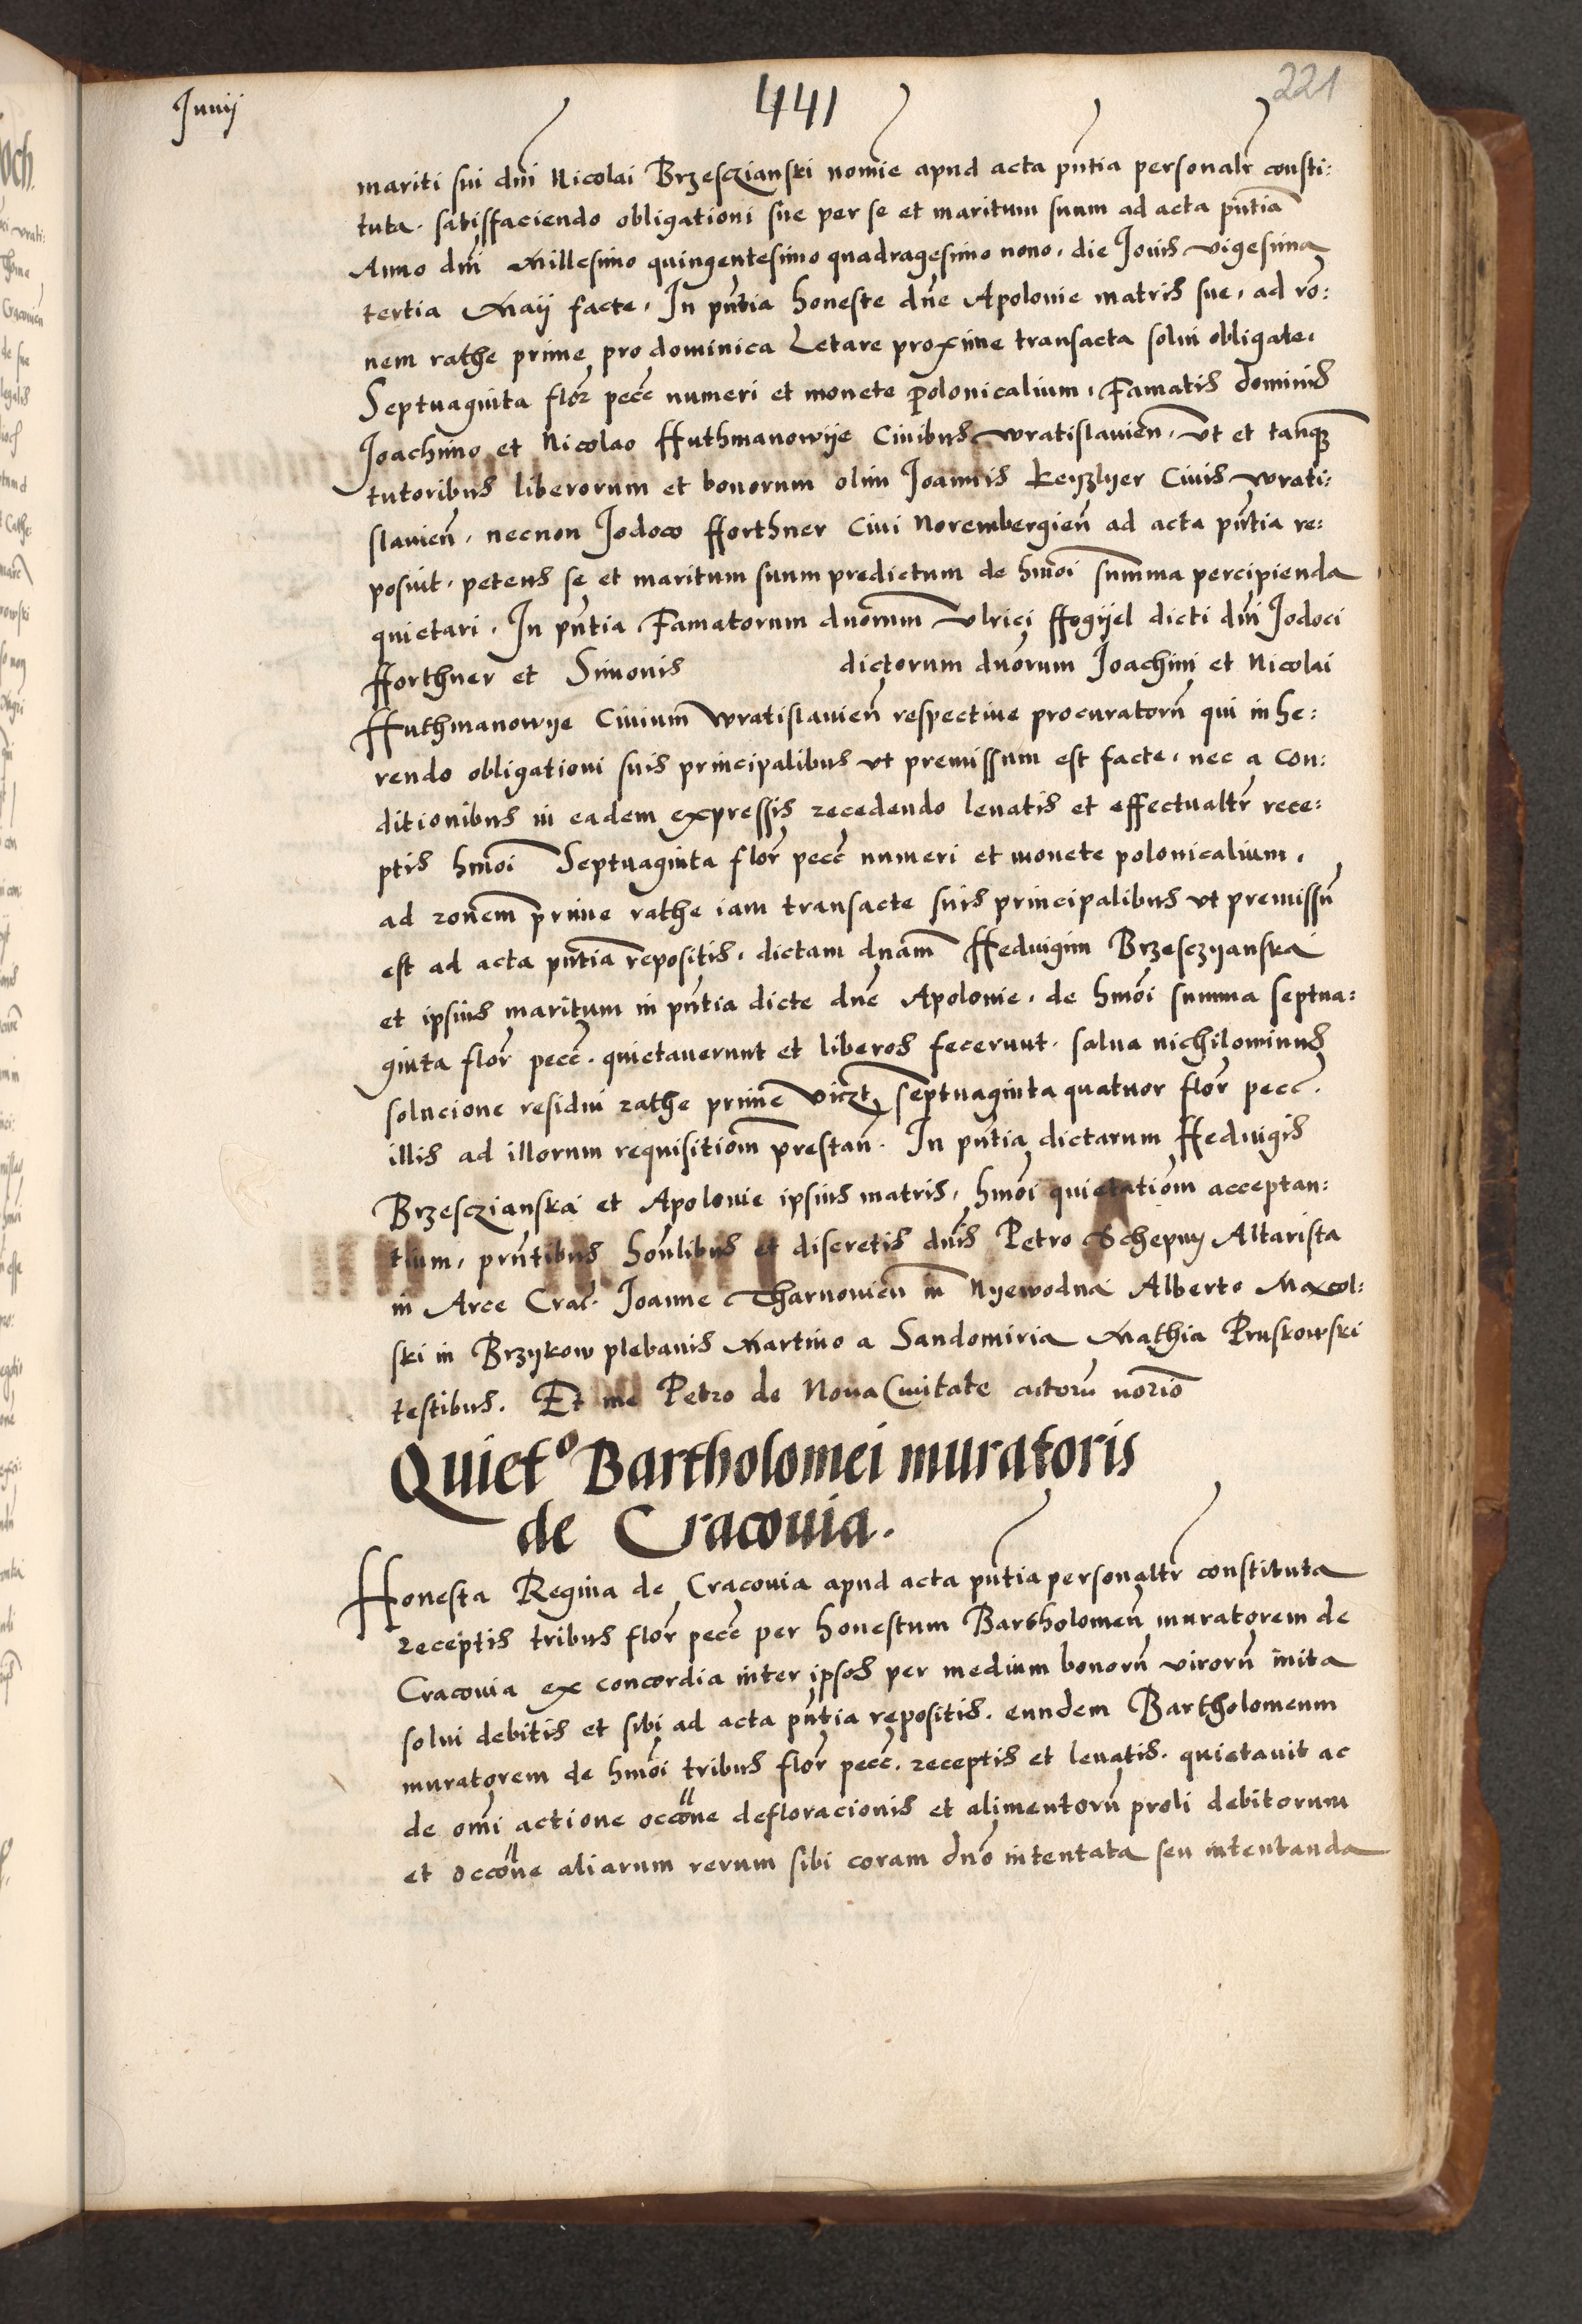 Junij
441
221
mariti sui dni Nicolai Brzesczianski nomie apud acta pntia personalr consti:
tuta. satisfaciendo obligationi sue per se et maritum suum ad acta pntia
Anno dni Millesimo quingentesimo quadragesimo nono. die Jouis vigesima
tertia Maij facte. In pntia honeste dne Apolonie matris sue. ad ro:
nem rathe prime pro dominica Letare proxime transacta solui obligate.
Septuaginta flor pecc numeri et monete polonicalium. Famatis dominis
Joachimo et Nicolao Huthmanowije Ciuibus wratislauien. vt et tanq
tutoribus liberorum et bonorum olim Joannis keyzlyer Ciuis wrati:
slauien. necnon Jodoco fforthner Ciui Norembergien ad acta pntia re:
posuit. petens se et maritum suum predictum de hmoi summa percipienda
quietari. In pntia Famatorum duorum vlrici ffogijel dicti dni Jodoci
fforthner et Simonis dictorum dnorum Joachimi et Nicolai
Huthmanowije Ciuium wratislauien respectiue procuratorn qui inhe:
rendo obligationi suis principalibus vt premissum est facte. nec a con:
ditionibus in eadem expressis recedendo leuatis et effectualtr rece:
ptis hmoi Septuaginta flor pecc numeri et monete polonicalium.
ad ronem prime rathe iam transacte suis principalibus vt premissu
est ad acta pntia repositis. dictam dnam Heduigim Brzesczyanska
et ipsius maritum in pntia dicte dne Apolonie. de hmoi summa septua:
ginta flor pecc. quietauerunt et liberos fecerunt. salua nichilominus
solucione residui rathe prime viczt septuaginta quatuor flor pecc.
illis ad illorum requisitiom prestan. In pntia dictarum Heduigis
Brzesczianska et Apolonie ipsius matris. hmoi quietatiom acceptan:
tium. prntibus honlibus et discretis dnis Petro Schepny Altarista
in Arce Crac. Joanne Tharnouien in Nyewodna Alberto Maxol:
ski in Brzykow plebanis Martino a Sandomiria Mathia Pruskowski
testibus. Et me Petro de Noua Ciuitate actoru norio
Quiet° Bartholomei muratoris
de Cracouia.
Honesta Regina de Cracouia apud acta pntia personaltr constituta
receptis tribus flor pecc per honestum Bartholomeu muratorem de
Cracouia ex concordia inter ipsos per medium bonoru viroru inita
solui debitis et sibi ad acta pntia repositis. eundem Bartholomeum
muratorem de hmoi tribus flor pecc. receptis et leuatis. quietauit ac
de omi actione occone defloracionis et alimentoru proli debitorum
et occone aliarum rerum sibi coram dno intentata seu intentanda